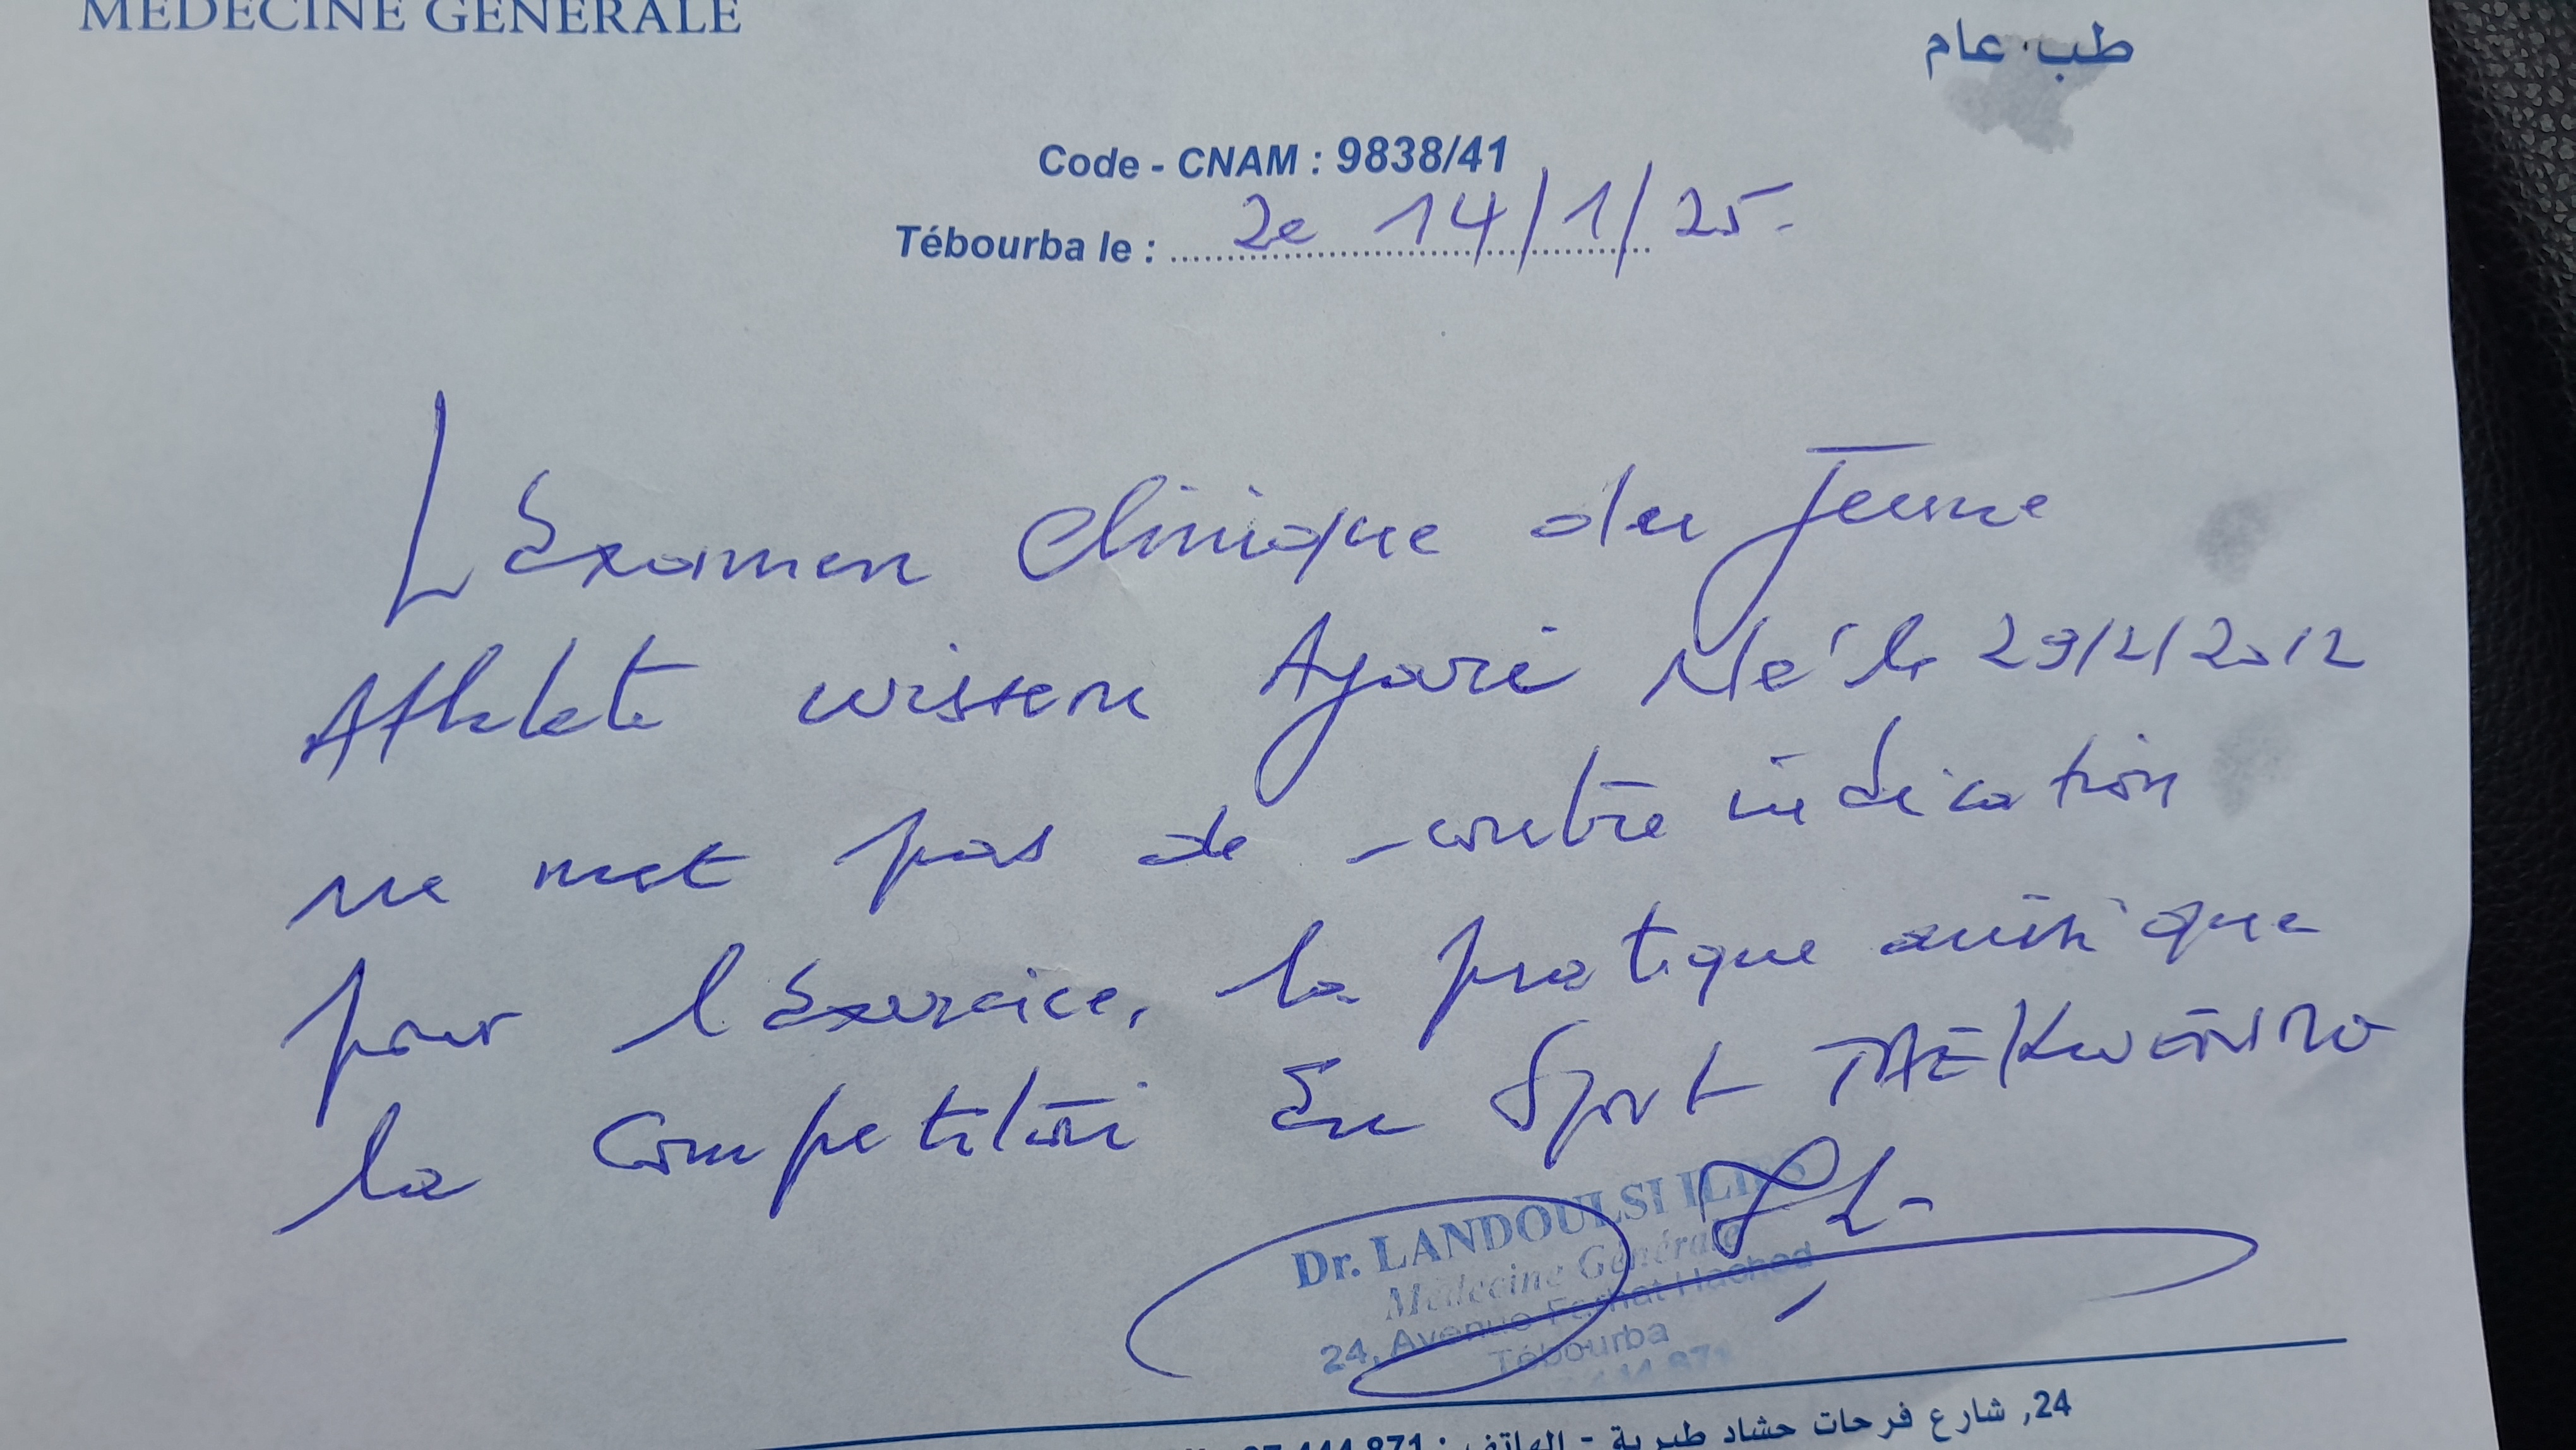 MÉDECINE GÉNÉRALE
طب عام
Code - CNAM : 9838/41
Tébourba le : le 14/1/25
L'Examen clinique du Jeune
Athlete wissem Ayari Né le 29/2/2012
ne met pas de contre indication
pour l'exercice, la pratique ainsi que
la Competition En Sport TAEKWONDO
Dr. LANDOULSI ILIES
Médecine Générale
24, Avenue Farhat Hached
Tébourba
444 871
24, شارع فرحات حشاد طبربة - الهاتف : 444 871